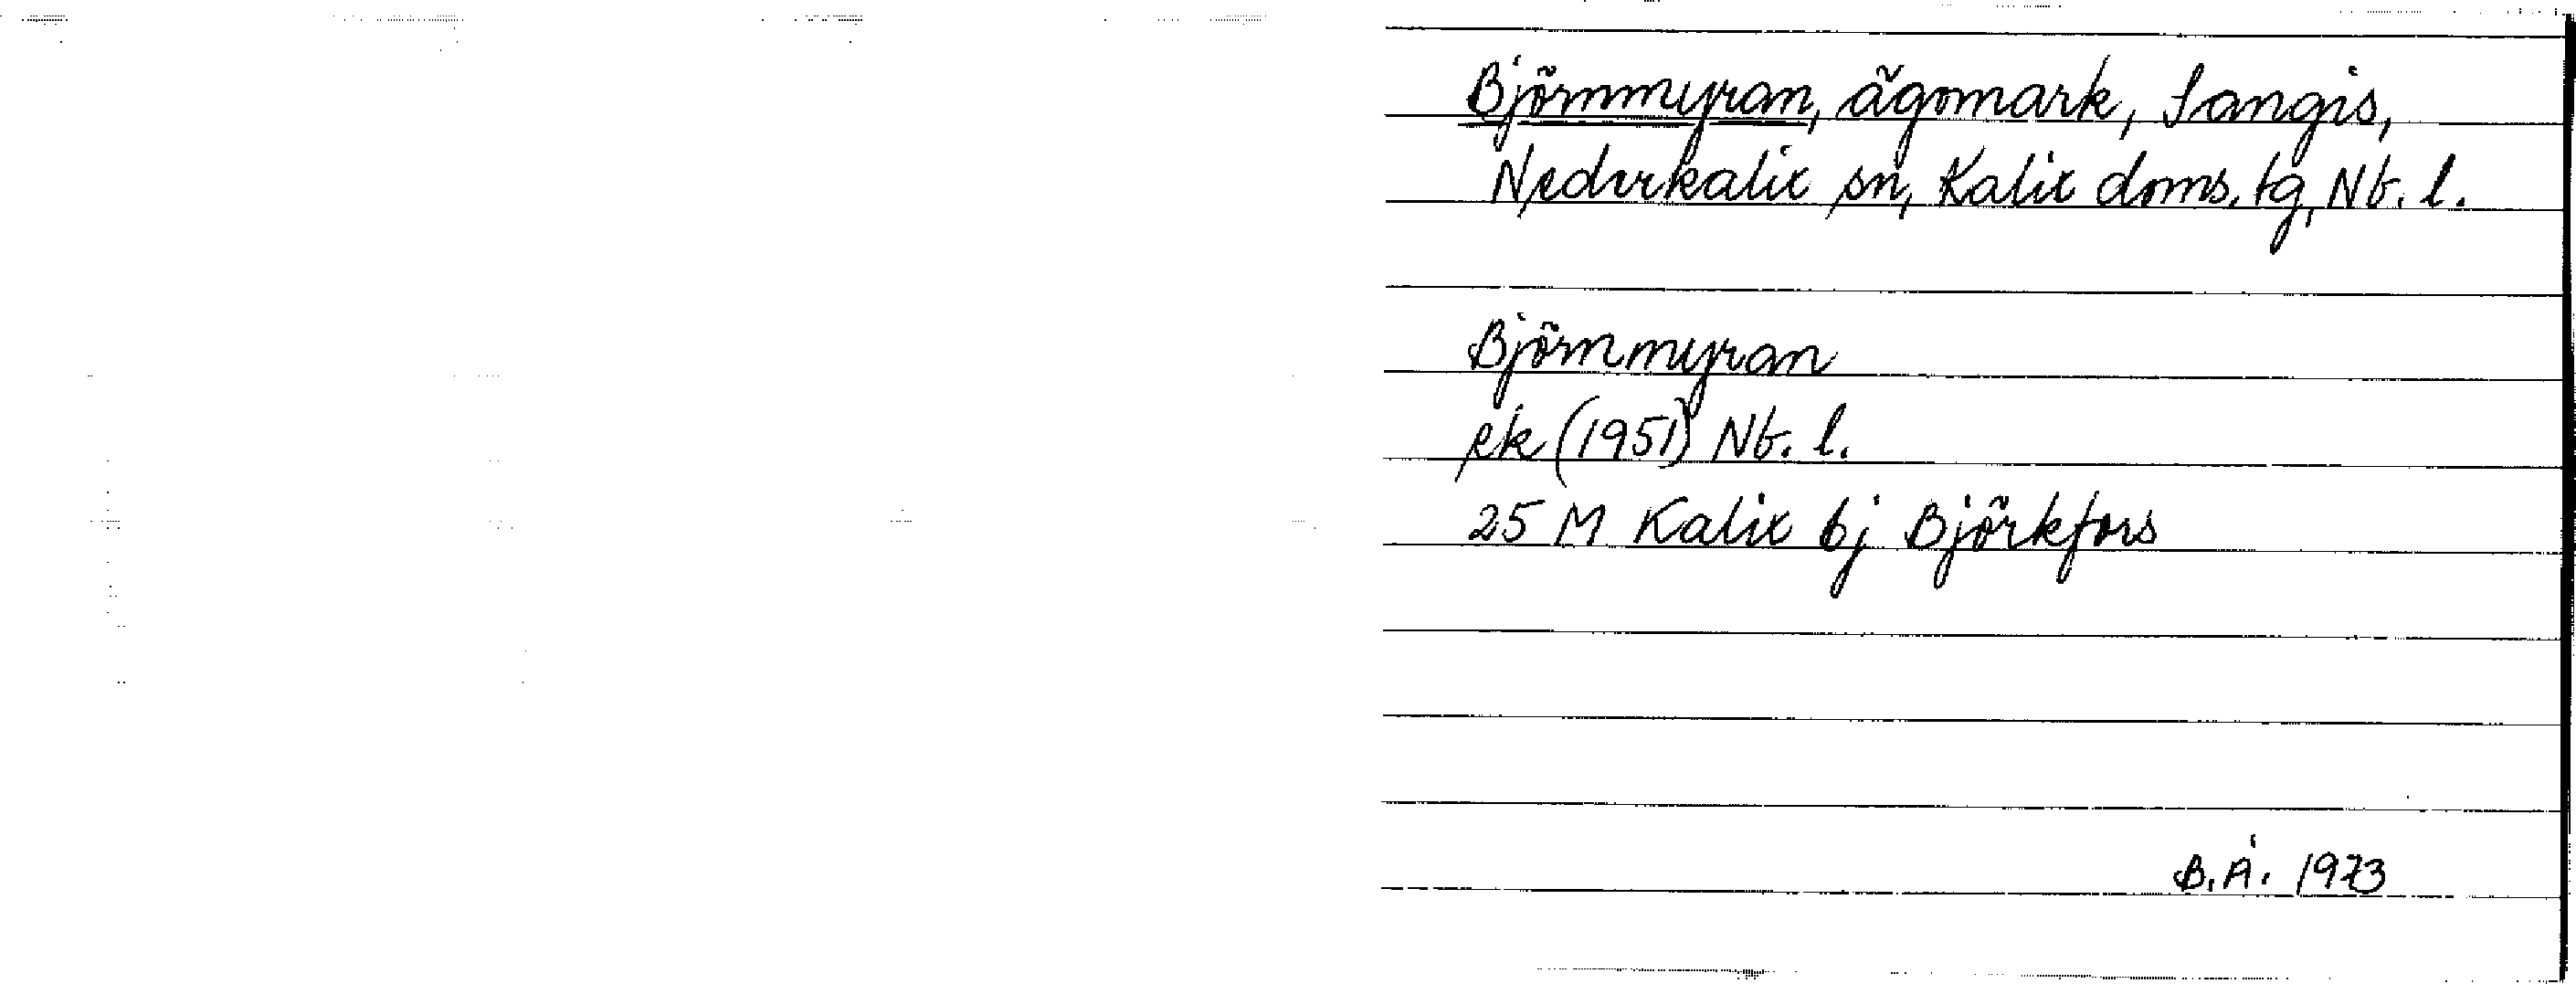 Björnmyran, ägomark, Sangis,
Nederkalix sn, Kalix doms. tg, Nb. l.
Björnmyran
ek (1951) Nb. l.
25 M Kalix bj Björkfors
B.Å. 1973